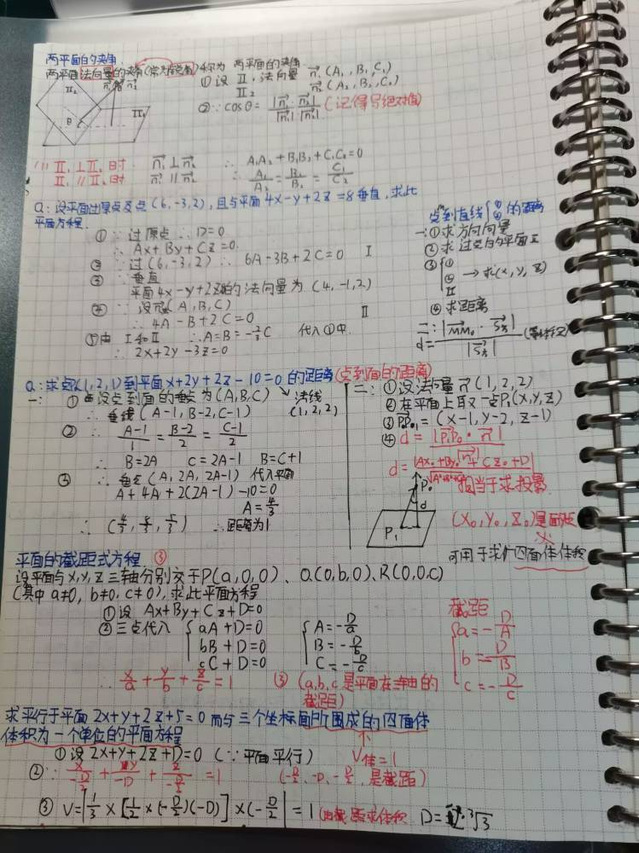 两平面的夹角
两平面法向量的夹角(常为锐角)称为 两平面的夹角
① 设 Π₁, 法向量 n₁(A₁,B₁,C₁)
Π₂ n₂(A₂,B₂,C₂)
②∴cosθ= |n₁·n₂| / |n₁||n₂| (记得导绝对值)
Π₁⊥Π₂时 n₁⊥n₂ ∴ A₁A₂+B₁B₂+C₁C₂=0
Π₁//Π₂时 n₁//n₂ ∴ A₁/A₂ = B₁/B₂ = C₁/C₂
Q:设平面过原点及点(6,-3,2),且与平面4x-y+2z=8垂直,求此
平面方程
① ∵过原点 ∴D=0
∴Ax+By+Cz=0
② ∵过(6,-3,2) ∴ 6A-3B+2C=0 Ⅰ
③ ∵垂直
平面4x-y+2z=8的法向量为(4,-1,2)
④ ∵设n(A,B,C)
∴4A-B+2C=0 Ⅱ
⑤由Ⅰ和Ⅱ ∴A=B=-2/3C 代入①中
∴2x+2y-3z=0
点到直线{①②的距离
一:①求方向向量
②求过交的平面Π
③{①②Π→求(x,y,z)
④求距离
二: d=|MM₀·S| / |S|
Q:求点(1,2,1)到平面x+2y+2z-10=0的距离(点到面的距离)
一: ①设交到面的垂交为(A,B,C) 法线
∴垂线(A-1,B-2,C-1) (1,2,2)
② A-1/1 = B-2/2 = C-1/2
∴B=2A C=2A-1 B=C+1
③ ∴垂交(A,2A,2A-1) 代入平面
A+4A+2(2A-1)-10=0
A=4/3
∴(4/3, 8/3, 5/3) ∴距离为1
二: ①设法向量n(1,2,2)
②在平面上取一点P₁(x,y,z)
③P₁P₀=(x-1,y-2,z-1)
④ d=|P₁P₀·n| / |n|
d=|Ax₀+By₀+Cz₀+D| / √A²+B²+C²
相当于求投影
P₀
d
P₁
(X₀,Y₀,Z₀)是面外
可用于求四面体体积
平面的截距式方程 ③
设平面与x,y,z三轴分别交于P(a,0,0)、Q(0,b,0)、R(0,0,c)
(其中a≠0,b≠0,c≠0),求此平面方程
①设 Ax+By+Cz+D=0
②三点代入 {aA+D=0 {A=-D/a
bB+D=0 B=-D/b
cC+D=0 C=-D/c
∴ x/a + y/b + z/c =1 ③ (a,b,c是平面在三轴的
截距)
截距
{a=-D/A
b=-D/B
c=-D/C
求平行于平面2x+y+2z+5=0而与三个坐标面所围成的四面体
体积为一个单位的平面方程
V体=1
①设2x+y+2z+D=0 (∵平面平行)
②∴ x/(-D/2) + y/(-D) + z/(-D/2) =1 (-D/2,-D,-D/2,是截距)
③ V=|1/3×[1/2×(-D/2)(-D)]×(-D/2)|=1 由截距求体积 D=±2·³√3